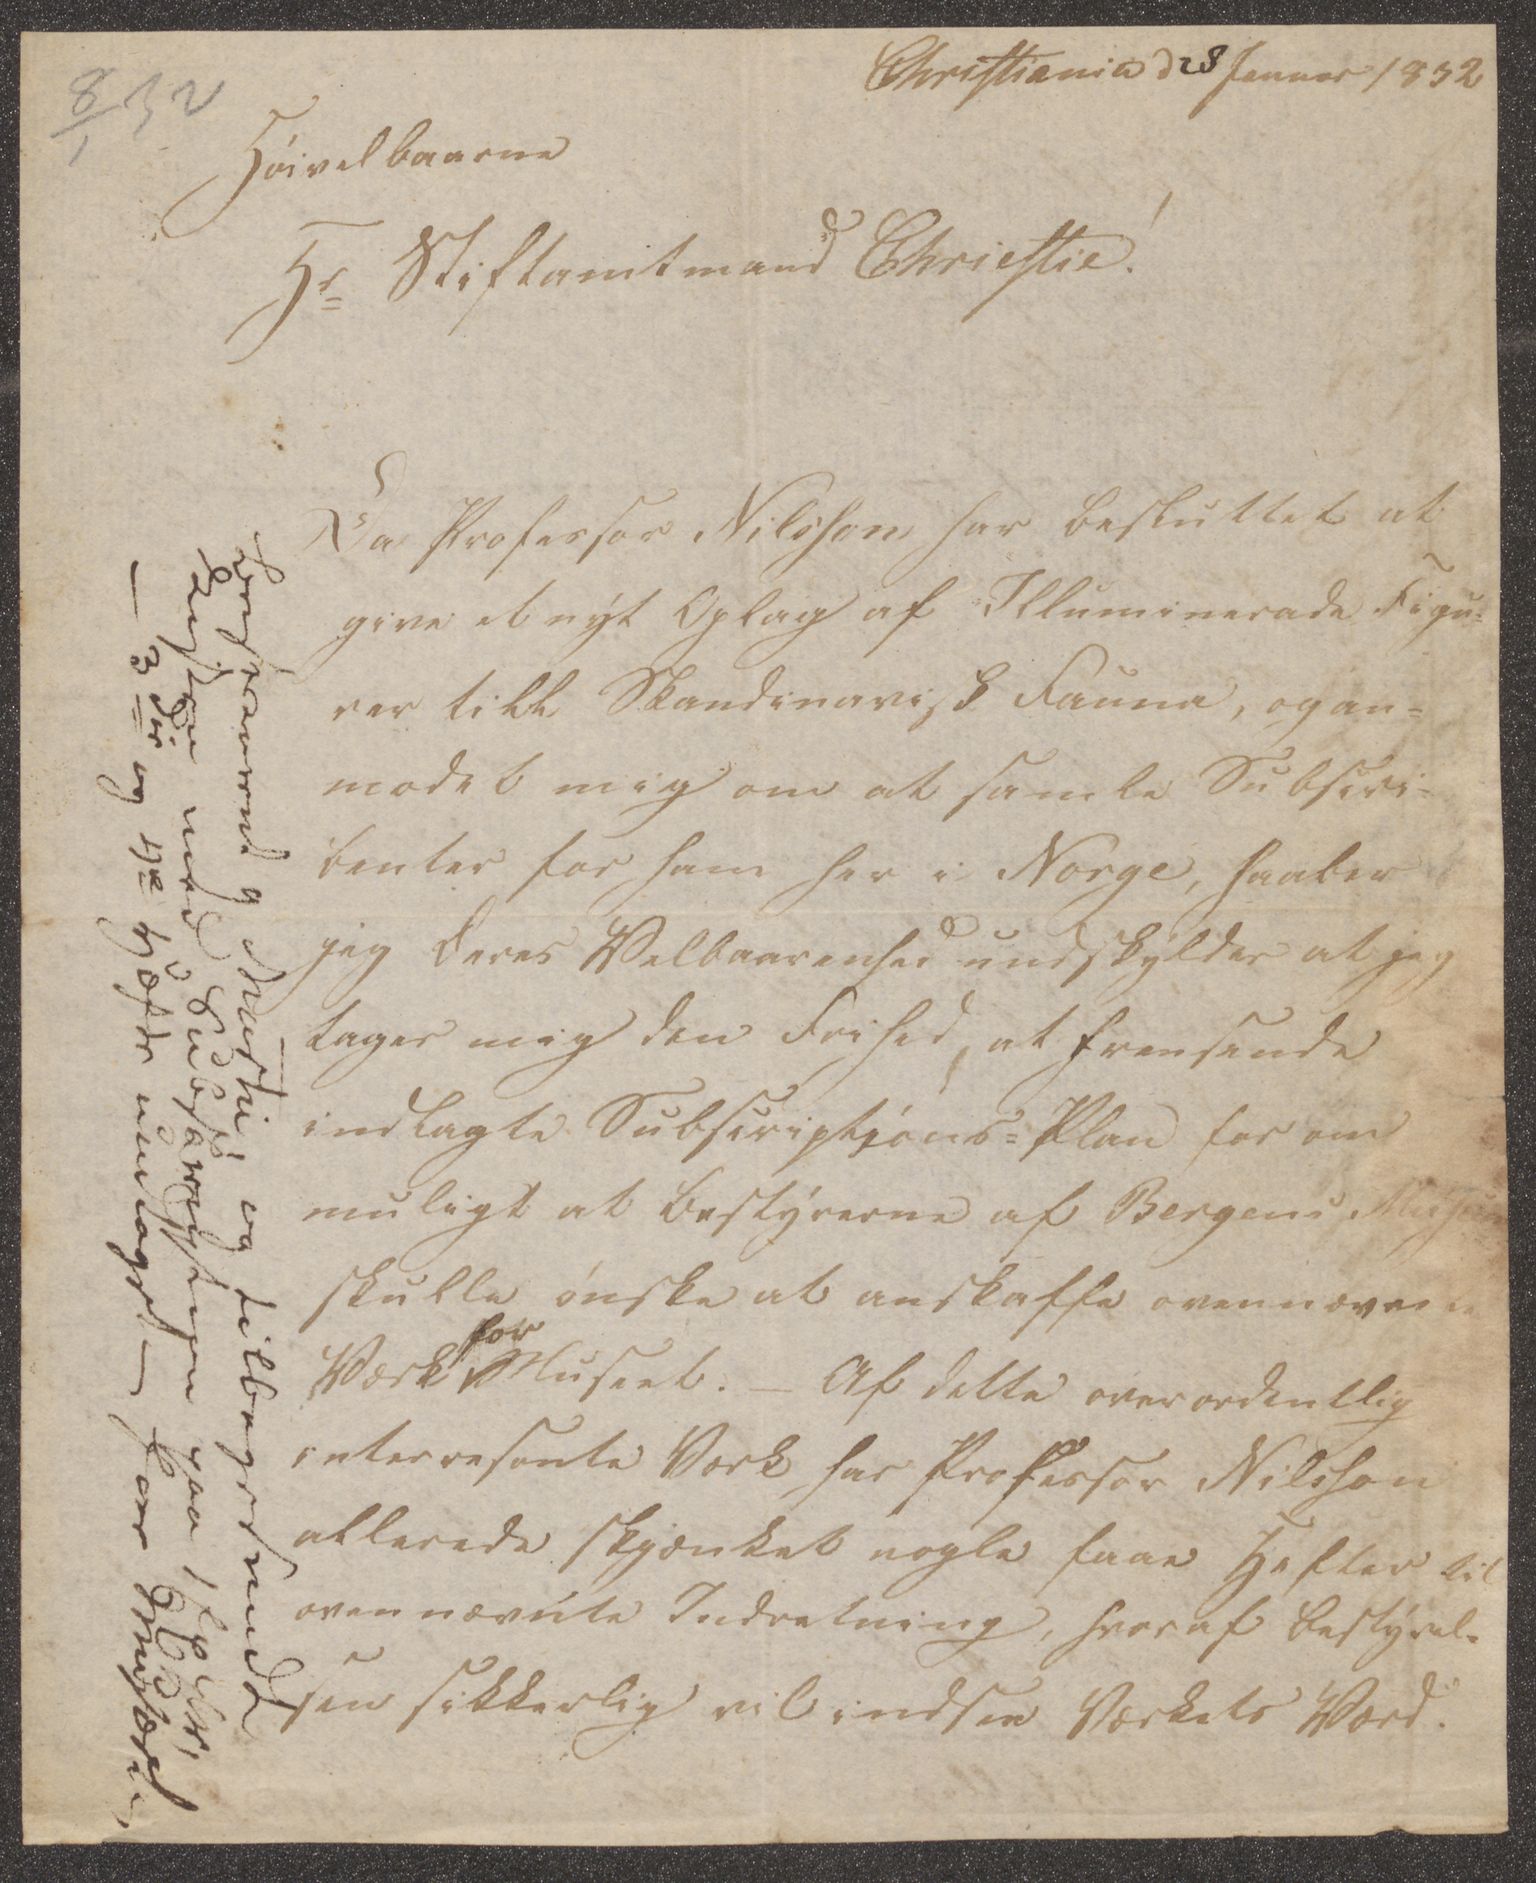 8/1 32
Christiania d 28 Januar 1832
Höivelbaarne
Hr Stiftamtmand Christie!
Da Professor Nilsson har besluttet at
give et nyt Oplag af Illuminerade Figu-
rer till Skandinavisk Fauna, og an-
modet mig om at samle Subscri-
benter for ham her i Norge, haaber
jeg Deres Velbaarenhed undskylder at jeg
tager mig den Frihed, at fremsende
indlagte Subscriptjons-Plan for om
muligt at Bestyrerne af Bergens Museum
skulle ønske at anskaffe ovennævnte
Værk for Museet. – Af dette overordentlig
interresante Værk har Professor Nilsson
allerede skjænket nogle faae Hefter til
ovennævnte Indretning, hvoraf Bestyrel-
sen sikkerlig vil indsee Værkets Værd.
og tilbagesendt
med Subscription paa 1 Expl.
– 3die og 4de Hefte undtaget – for Museet